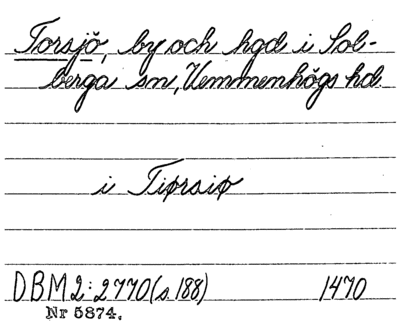 Torsjö, by och hgd i Sol-
berga sn, Vemmenhögs hd.
i Tiørsiø
DBM 2:2770 (s. 188) 1470
Nr 5874.